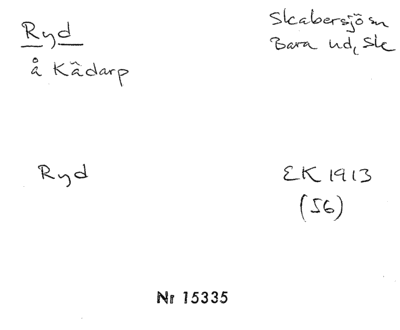 Ryd
å Kådarp
Skabersjö sn
Bara hd, Sk
Ryd
EK 1913
(I6)
Nr 15335